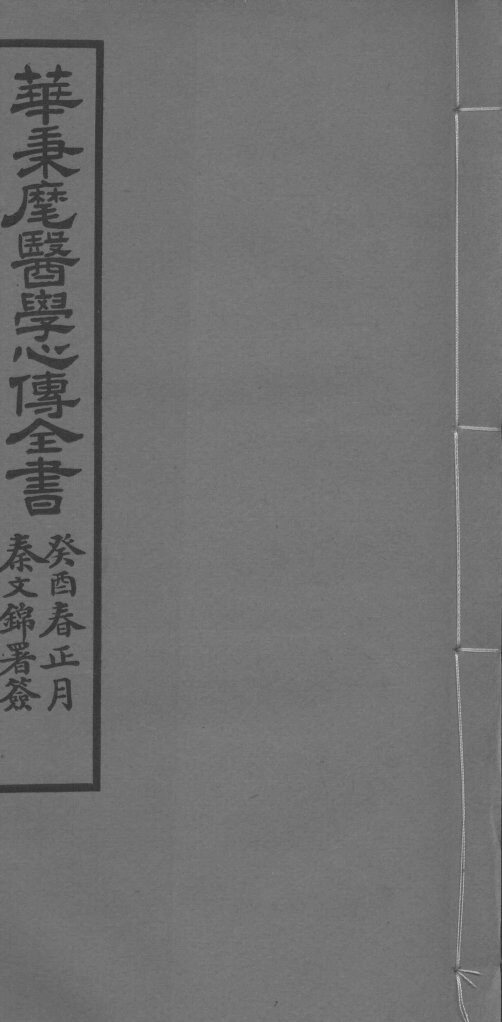 華秉麾醫學心傳全書
癸酉春正月
秦文錦署簽